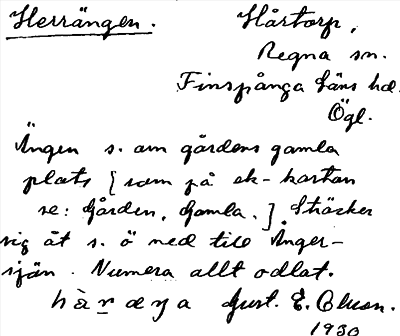 Herrängen.
Hårtorp,
Regna sn.
Finspånga läns hd.
Ögl.
Ängen s. om gårdens gamla
plats [som på ek-kartan
se: Gården, Gamla.] Sträcker
sig åt s. ö ned till Ånger-
sjön. Numera allt odlat.
hàræŋa Gust. E. Olsson.
1930